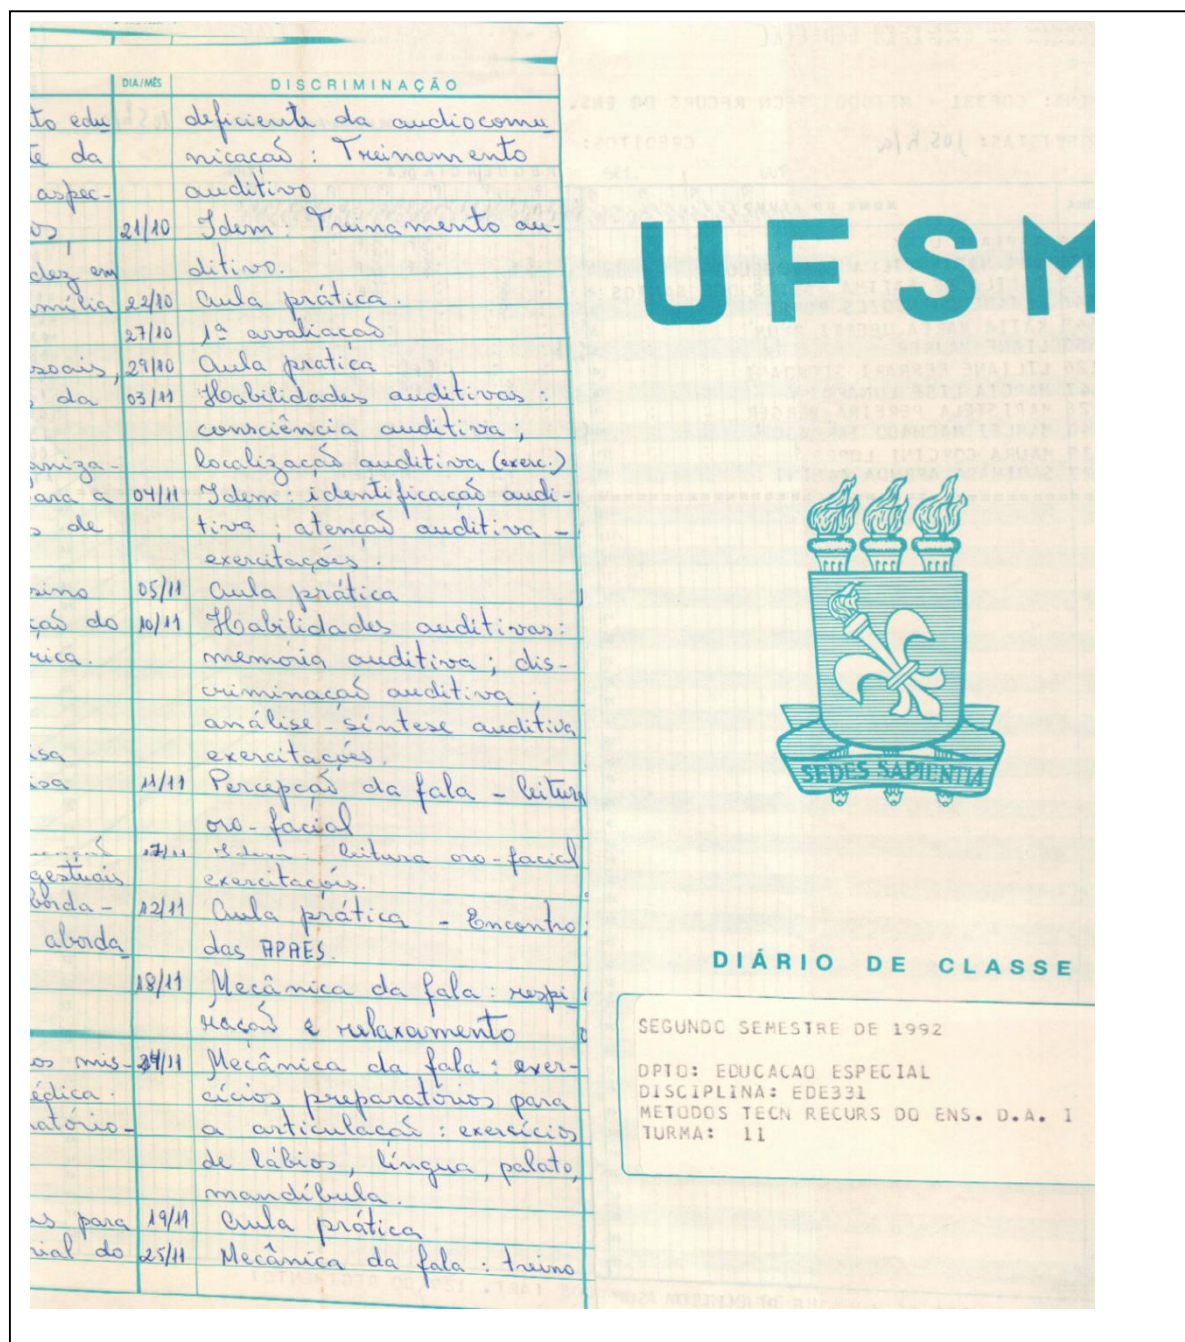 DIA/MÊS DISCRIMINAÇÃO
to edu deficiente da audiocomu
te da nicação : Treinamento
aspec- auditivo
os, 21/10 Idem : Treinamento au-
dez em ditivo.
mília 22/10 Aula prática.
27/10 1ª avaliação
ssoais, 29/10 Aula prática
da 03/11 Habilidades auditivas :
consciência auditiva ;
aniza- localização auditiva (exerc.)
ara a 04/11 Idem : identificação audi-
s de tiva ; atenção auditiva -
exercitações.
sino 05/11 Aula prática
ção do 10/11 Habilidades auditivas :
rica. memória auditiva ; dis-
criminação auditiva ;
análise - síntese auditiva
isa exercitações.
isa 11/11 Percepção da fala - leitura
oro-facial
17/11 Idem : leitura oro-facial
gestuais exercitações.
borda- 12/11 Aula prática - Encontro
aborda das APAES.
18/11 Mecânica da fala : respi-
ração e relaxamento
os mis- 24/11 Mecânica da fala : exer-
édica. cícios preparatórios para
ratório- a articulação : exercícios
de lábios, língua, palato,
mandíbula.
us para 19/11 Aula prática
rial do 25/11 Mecânica da fala : treino
UFSM
SEDES SAPIENTIA
DIÁRIO DE CLASSE
SEGUNDO SEMESTRE DE 1992
DPTO: EDUCACAO ESPECIAL
DISCIPLINA: EDE331
METODOS TECN RECURS DO ENS. D.A. I
TURMA: 11